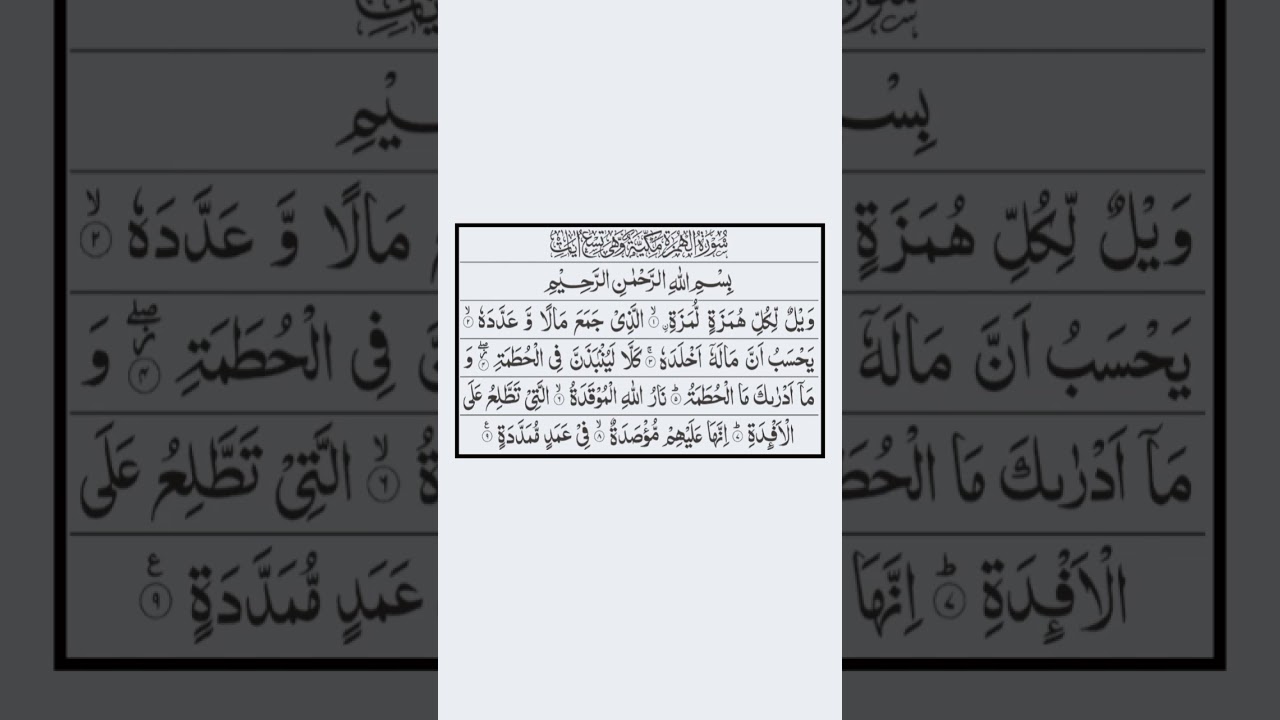 سُوْرَةُ الْهُمَزَةِ مَكِّيَّةٌ وَّهِيَ تِسْعُ اٰيَاتٍ
بِسْمِ اللهِ الرَّحْمٰنِ الرَّحِيْمِ
وَيْلٌ لِّكُلِّ هُمَزَةٍ لُّمَزَةِۣ ۙ﴿۱﴾ الَّذِىْ جَمَعَ مَالًا وَّ عَدَّدَهٗ ۙ﴿۲﴾
يَحْسَبُ اَنَّ مَالَهٗۤ اَخْلَدَهٗ ۚ﴿۳﴾ كَلَّا لَيُنْۢبَذَنَّ فِى الْحُطَمَةِ ۫ۖ﴿۴﴾ وَ
مَاۤ اَدْرٰىكَ مَا الْحُطَمَةُ ؕ﴿۵﴾ نَارُ اللهِ الْمُوْقَدَةُ ۙ﴿۶﴾ الَّتِىْ تَطَّلِعُ عَلَى
الْاَفْـِٕدَةِ ؕ﴿۷﴾ اِنَّهَا عَلَيْهِمْ مُّؤْصَدَةٌ ۙ﴿۸﴾ فِىْ عَمَدٍ مُّمَدَّدَةٍ ﴿۹﴾ ع